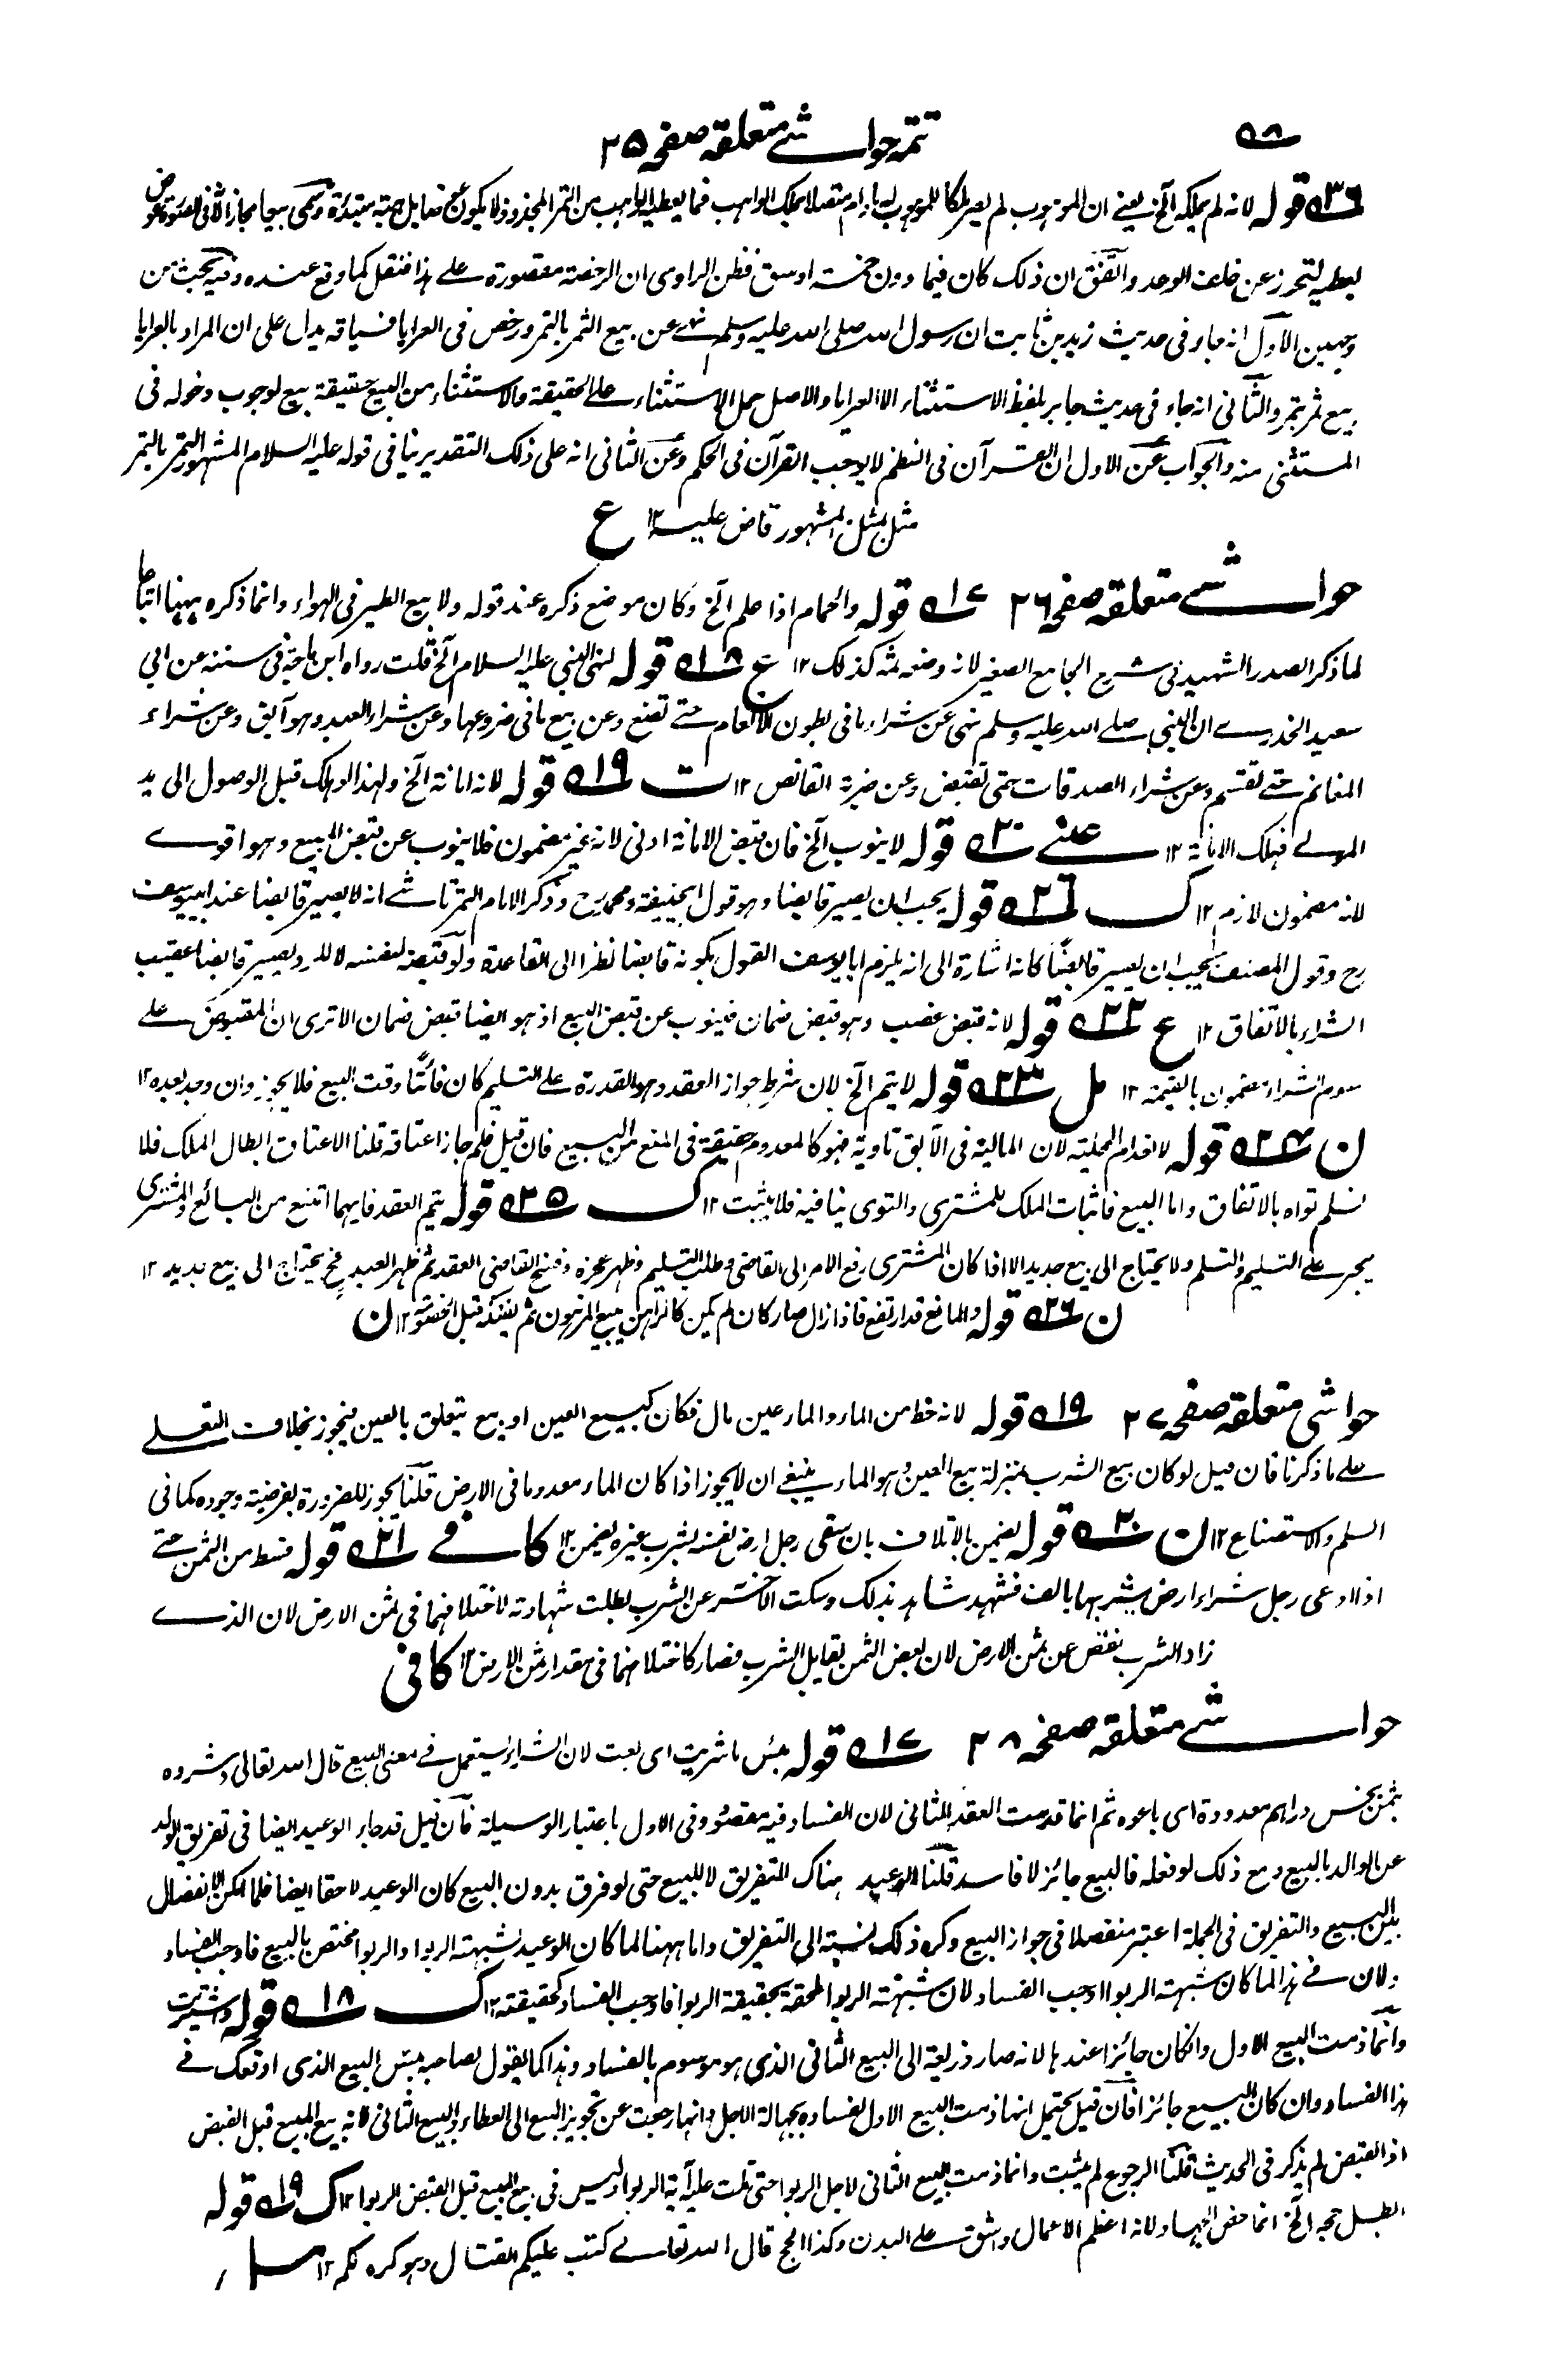 ۵۸
تتمہ حواشے متعلقہ صفحہ ۲۵
۳۶ قولہ لانہ لم یملکہ الخ یعنے ان الموہوب لم یصر ملکا للموہوب لہ مادام متصلا بملک الواہب فما یعطیہ الواہب من التمر المجذوذ لا یکون عوضا بل ہبۃ مبتدءۃ وسمی بیعا مجازا لانہ فی الصورۃ عوض
یعطیہ لتحرز عن خلف الوعد واتفق ان ذلک کان فیما دون خمسۃ اوسق فظن الراوی ان الرخصۃ مقصورۃ علے ہذا فنقل کما وقع عندہ وفیہ بحث من
وجہین الاول انہ جاء فی حدیث زید بن ثابت ان رسول اللہ صلی اللہ علیہ وسلم نہے عن بیع الثمر بالتمر ورخص فی العرایا فسیاقہ یدل علی ان المراد بالعرایا
بیع ثمر بتمر والثانی انہ جاء فی حدیث جابر بلفظ الاستثناء الا العرایا والاصل حمل الاستثناء علے الحقیقۃ والاستثناء من البیع حقیقۃ بیع لوجوب دخولہ فی
المستثنی منہ والجواب عن الاول ان القرآن فی النظم لا یوجب القرآن فی الحکم وعن الثانی انہ علی ذلک التقدیر ینافی قولہ علیہ السلام المشہور التمر بالتمر
مثل بمثل المشہور قاض علیہ ۱۲ ع
حواشے متعلقہ صفحہ ۲۶ ۱۷ قولہ والحمام اذا علم الخ وکان موضع ذکرہ عند قولہ ولا بیع الطیر فی الہواء وانما ذکرہ ہہنا اتباعا
لما ذکر الصدر الشہید فی شرح الجامع الصغیر لانہ وضعہ ثمہ کذلک ۱۲ ع ۱۸ قولہ لنہی النبی علیہ السلام الخ قلت رواہ ابن ماجۃ فی سننہ عن ابی
سعید الخدرے ان النبی صلے اللہ علیہ وسلم نہی عن شراء ما فی بطون الانعام حتے تضع وعن بیع ما فی ضروعہا وعن شراء العبد وہو آبق وعن شراء
المغانم حتے تقسم وعن شراء الصدقات حتی تقبض وعن ضربۃ القانص ۱۲ ت ۱۹ قولہ لانہ امانۃ الخ ولہذا لو ہلک قبل الوصول الی ید
المولے فہلک الامانۃ ۱۲ عینے ۲۰ قولہ لا ینوب الخ فان قبض الامانۃ ادنی لانہ غیر مضمون فلا ینوب عن قبض المبیع وہو اقوے
لانہ مضمون لازم ۱۲ ک ۲۱ قولہ یجب ان یصیر قابضا وہو قول ابیحنیفۃ ومحمد رح وذکر الامام التمرتاشے انہ لا یصیر قابضا عند ابییوسف
رح وقول المصنف یجب ان یصیر قابضا کانہ اشارۃ الی انہ یلزم ابا یوسف القول بکونہ قابضا نظرا الی القاعدۃ ولو قبضہ لنفسہ لا للرد یصیر قابضا عقیب
الشراء بالاتفاق ۱۲ ع ۲۲ قولہ لانہ قبض غصب وہو قبض ضمان فینوب عن قبض البیع اذ ہو ایضا قبض ضمان الا تری ان المقبوض علے
سوم الشراء مضمون بالقیمۃ ۱۲ مل ۲۳ قولہ لا یتم الخ لان شرط جواز العقد وہو القدرۃ علے التسلیم کان فائتا وقت البیع فلا یجوز وان وجد بعدہ ۱۲
ن ۲۴ قولہ لانعدام المحلیۃ لان المالیۃ فی الآبق ثاویۃ فہو کالمعدوم حقیقۃ فی المنع من البیع فان قیل فلم جاز اعتاقہ قلنا الاعتاق ابطال الملک فلا
نسلم تواہ بالاتفاق واما البیع فاثبات الملک للمشتری والتوی ینافیہ فلا یثبت ۱۲ ک ۲۵ قولہ یتم العقد فایہما امتنع من البائع والمشتری
یجبر علے التسلیم والتسلم ولا یحتاج الی بیع جدید الا اذا کان المشتری رفع الامر الی القاضی وطلب التسلیم وظہر عجزہ وفسخ القاضی العقد ثم ظہر العبد فح یحتاج الی بیع جدید ۱۲
ن ۲۶ قولہ والمانع قد ارتفع فاذا زال صار کان لم یکن کالراہن یبیع المرہون ثم یفتکہ قبل الخصومۃ ۱۲ ن
حواشی متعلقہ صفحہ ۲۷ ۱۹ قولہ لانہ حظ من الماء والماء عین مال فکان کبیع العین او بیع یتعلق بالعین فیجوز بخلاف التعلی
علے ما ذکرنا فان قیل لو کان بیع الشرب بمنزلۃ بیع العین وہو الماء ینبغے ان لا یجوز اذا کان الماء معدوما فی الارض قلنا یجوز للضرورۃ بفرضیۃ وجودہ کما فی
السلم والاستصناع ۱۲ ن ۲۰ قولہ یضمن بالاتلاف بان سقی رجل ارض نفسہ بشرب غیرہ یضمن ۱۲ کافے ۲۱ قولہ قسط من الثمن حتے
اذا ادعی رجل شراء ارض بشربہا بالف فشہد شاہد بذلک وسکت الآخر عن الشرب بطلت شہادتہ لاختلافہما فی ثمن الارض لان الذے
زاد الشرب نقص عن ثمن الارض لان بعض الثمن یقابل الشرب فصار کاختلافہما فی مقدار ثمن الارض ۱۲ کافی
حواشے متعلقہ صفحہ ۲۸ ۱۷ قولہ بئس ما شریت ای بعت لان الشراء یستعمل فے معنی البیع قال اللہ تعالی وشروہ
بثمن بخس دراہم معدودۃ ای باعوہ ثم انما قدمت العقد الثانی لان الفساد فیہ مقصود وفی الاول باعتبار الوسیلۃ فان قیل قد جاء الوعید ایضا فی تفریق الولد
عن الوالد بالبیع ومع ذلک لو فعلہ فالبیع جائز لا فاسد قلنا الوعید ہناک للتفریق لا للبیع حتی لو فرق بدون البیع کان الوعید لاحقا ایضا فلما امکن الانفصال
بین البیع والتفریق فی الجملۃ اعتبر منفصلا فی جواز البیع وکرہ ذلک لنسبتہ الی التفریق واما ہہنا لما کان الوعید لشبہۃ الربوا والربوا مختص بالبیع فاوجب الفساد
ولان فے ہذا لما کان شبہۃ الربوا اوجب الفساد لان شبہۃ الربوا ملحقۃ بحقیقۃ الربوا فاوجب الفساد کحقیقتہ ۱۲ ک ۱۸ قولہ واشتریت
وانما ذمت البیع الاول وانکان جائزا عندہا لانہ صار ذریعۃ الی البیع الثانی الذی ہو موسوم بالفساد وہذا کما یقول لصاحبہ بئس البیع الذی اوقعک فے
ہذا الفساد وان کان البیع جائزا فان قیل یحتمل انہا ذمت البیع الاول لفسادہ بجہالۃ الاجل وانہا رجعت عن تجویز البیع الی العطاء والبیع الثانی لانہ بیع المبیع قبل القبض
اذ القبض لم یذکر فی الحدیث قلنا الرجوع لم یثبت وانما ذمت البیع الثانی لاجل الربوا حتی تلت علیہ آیۃ الربوا ولیس فی بیع المبیع قبل القبض الربوا ۱۲ ک ۱۹ قولہ
ابطل حجہ الخ انما خص الجہاد لانہ اعظم الاعمال واشق علے البدن وکذا الحج قال اللہ تعالے کتب علیکم القتال وہو کرہ لکم ۱۲